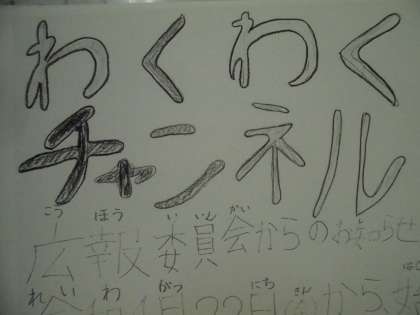 わくわく
チャンネル
こう ほう い いん かい
広報委員会からのお知らせ
れい わ がつ にち
月22日 から、